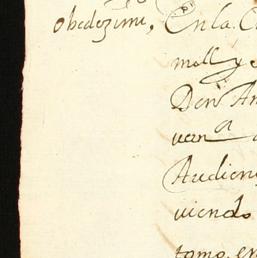 obedezimi,
En la C
mill y s
Den An
ven a
Audien
viendo
tomo en